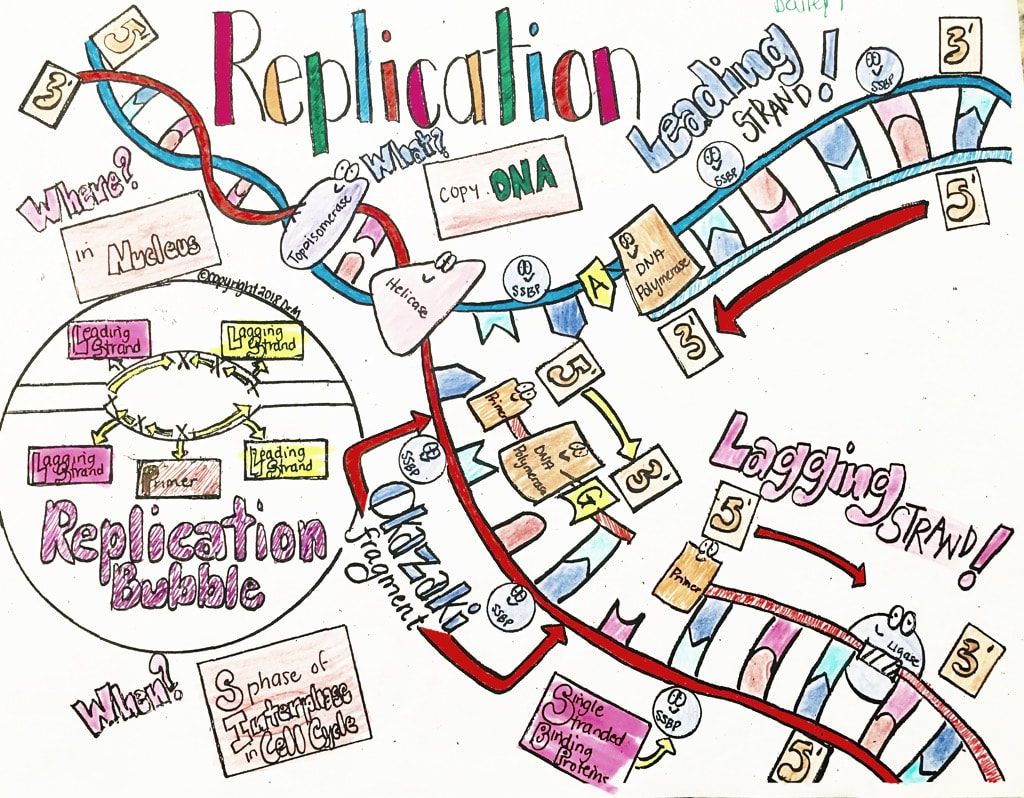 Replication
5
3'
Where?
in Nucleus
What?
COPY DNA
Topoisomerase
Helicase
SSBP
A
DNA
Polymerase
Leading
STRAND!
SSBP
SSBP
3'
5'
3'
©Copyright 2018 Dr.M
Leading
Strand
Lagging
Strand
Lagging
Strand
Primer
Leading
Strand
X
X
X
X
X
Replication
Bubble
When?
S phase of
Interphase
in Cell Cycle
Okazaki
fragment
SSBP
SSBP
Primer
DNA
Polymerase
G
5'
3'
Lagging
STRAND!
5'
Primer
Ligase
3'
5'
Single
Stranded
Binding
Proteins
SSBP